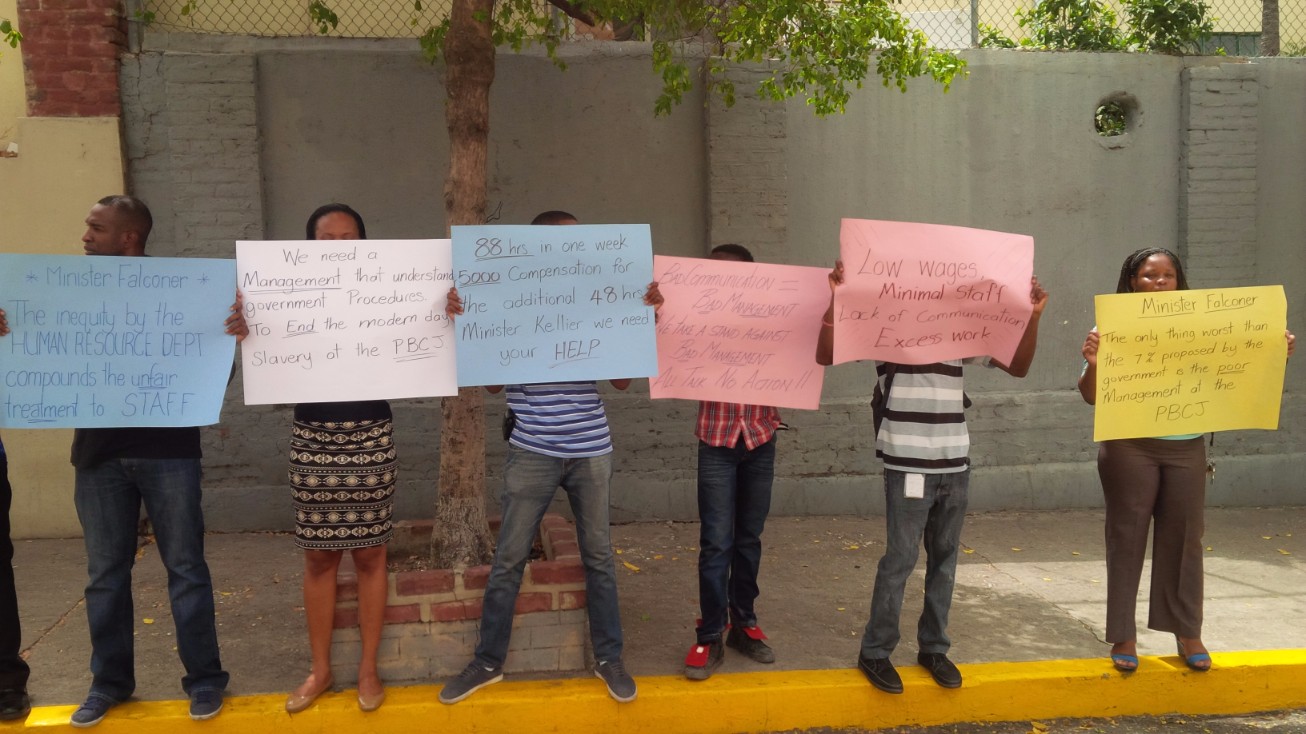 * Minister Falconer *
The inequity by the
HUMAN RESOURCE DEPT
compounds the unfair
treatment to STAFF
We need a
Management that understand
government Procedures.
To End the modern day
Slavery at the PBCJ
88 hrs in one week
5000 Compensation for
the additional 48 hrs
Minister Kellier we need
your HELP
Bad Communication =
Bad Management
We Take a stand against
Bad Management
All Talk No Action!!
Low wages,
Minimal Staff
Lack of Communication
Excess work
Minister Falconer
The only thing worst than
the 7% proposed by the
government is the poor
Management at the
PBCJ